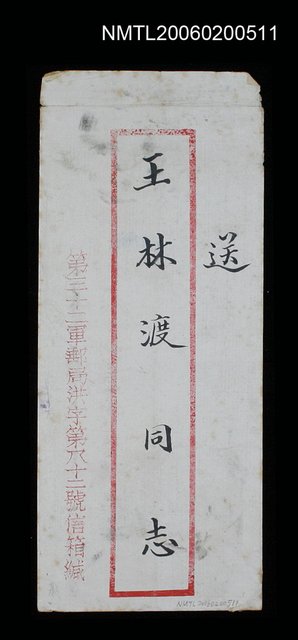 NMTL20060200511
送
王林渡同志
第三十二軍郵局洪字第八十二號信箱緘
NMTL20060200511